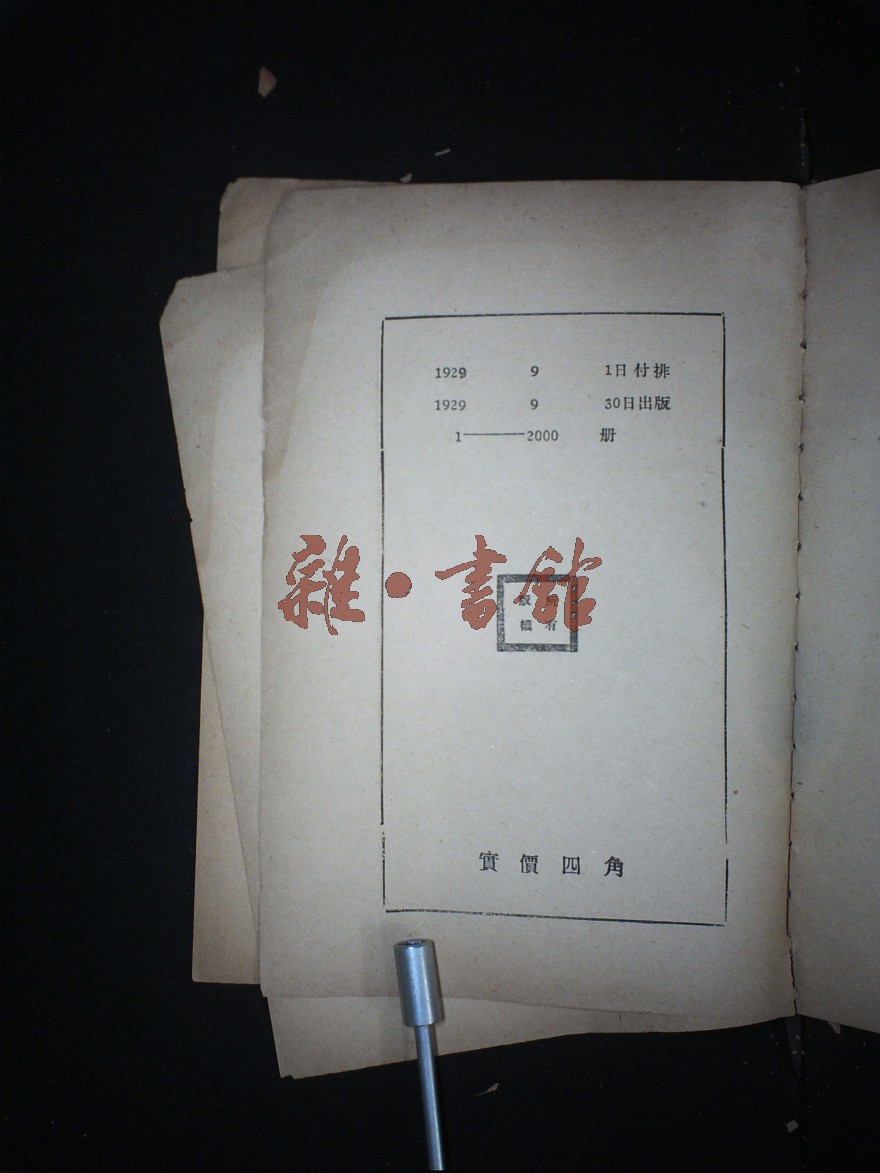 1929 9 1日付排
1929 9 30日出版
1——2000 册
雜·書館
版所
權有
實價四角